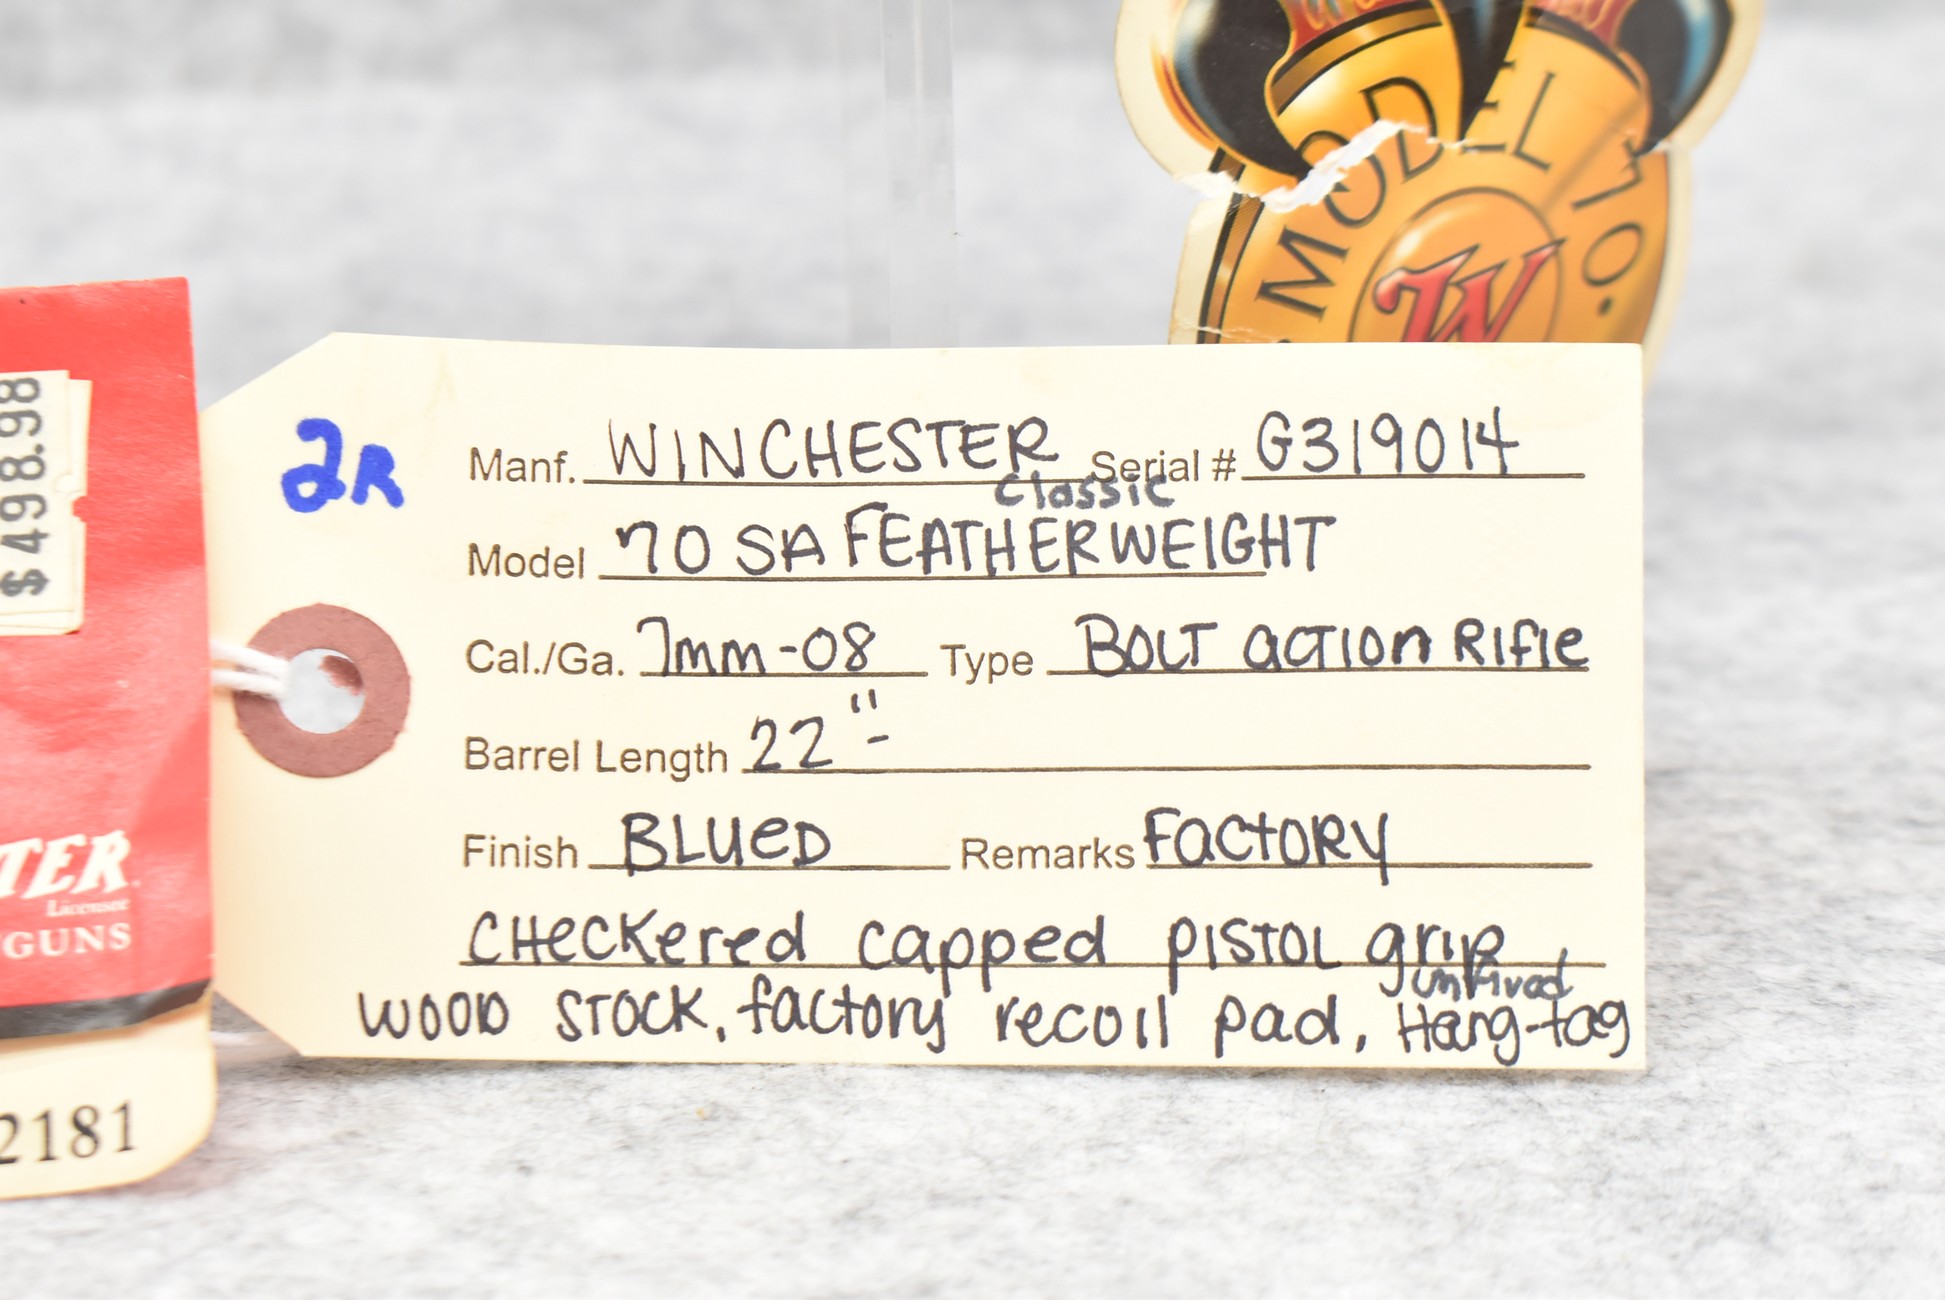 MODEL 70.
W
$498.98
TER
Licensee
GUNS
2181
2R
Manf. WINCHESTER Serial # G319014
Classic
Model 70 SA FEATHERWEIGHT
Cal./Ga. 7mm-08 Type BOLT action Rifle
Barrel Length 22"-
Finish BLUED Remarks Factory
CHeckered capped PISTOL grip,
unfired
WOOD STOCK, factory recoil pad, Hang-tag